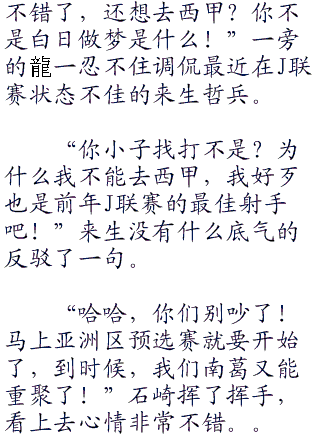 不错了，还想去西甲？你不
是白日做梦是什么！”一旁
的龍一忍不住调侃最近在J联
赛状态不佳的来生哲兵。
“你小子找打不是？为
什么我不能去西甲，我好歹
也是前年J联赛的最佳射手
吧！”来生没有什么底气的
反驳了一句。
“哈哈，你们别吵了！
马上亚洲区预选赛就要开始
了，到时候，我们南葛又能
重聚了！”石崎挥了挥手，
看上去心情非常不错。。